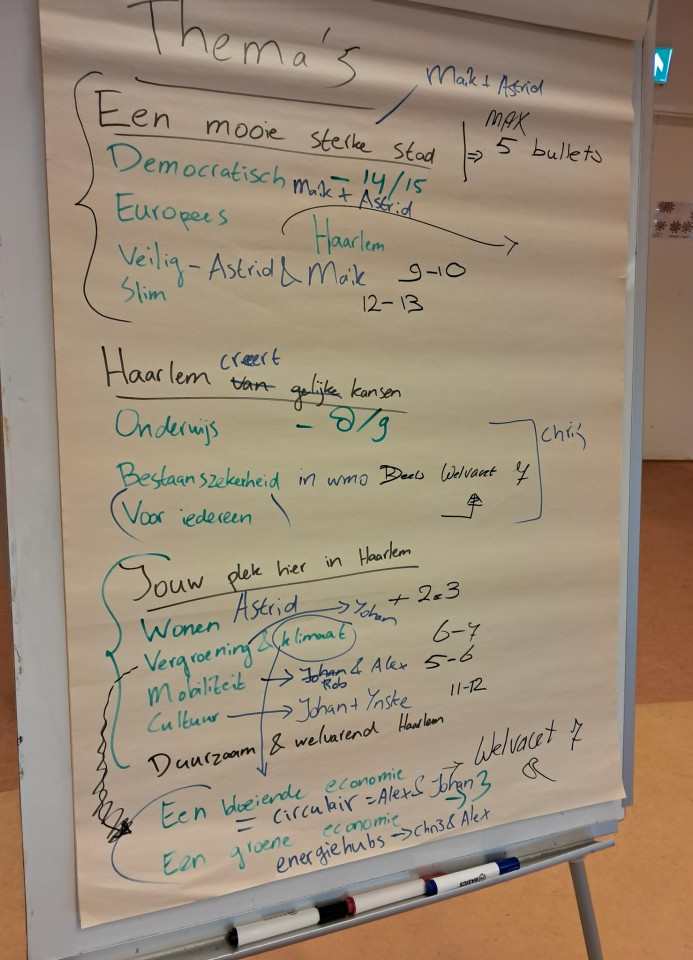 Thema's
Maik + Astrid
Een mooie sterke stad
MAX
⇒ 5 bullets
Democratisch - 14/15
Maik + Astrid
Europees
Haarlem
Veilig - Astrid & Maik 9-10
Slim 12-13
Haarlem creert van gelijke kansen
Onderwijs - 8/9
Bestaanszekerheid in wmo Deels Welvaert 7
Chris
Voor iedereen
Jouw plek hier in Haarlem
Wonen Astrid
→ Johan + 2 3
Vergroening & klimaat 6-7
Mobiliteit → Johan & Alex 5-6
Rob
Cultuur → Johan + Ynske 11-12
Duurzaam & welvarend Haarlem
Een bloeiende economie → Welvaert 7
= circulair = Alex & Johan 3
&
Een groene economie
energiehubs → Chr3 & Alex